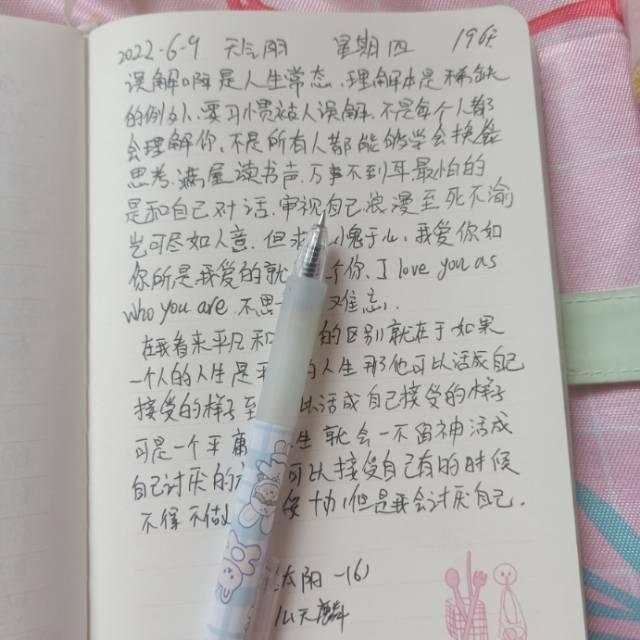 2022.6.9 天气阴 星期四 19点
误解啊是人生常态,理解本是稀缺
的例外、要习惯被人误解.不是每个人都
会理解你、不是所有人都能够学会换位
思考.满屋读书声.万事不到耳最怕的
是和自己对话.审视自己浪漫至死不渝
岂可尽如人意.但求 愧于心.我爱你如
你所是我爱的就 你、I love you as
who you are.不思 难忘,
在我看来平凡和 的区别就在于如果
一个人的人生是平 的人生那他可以活成自己
接受的样子至 以活成自己接受的样子
可是一个平庸 生就会一不留神活成
自己讨厌的 可以接受自己有的时候
不得不做 但是我会讨厌自己.
太阳